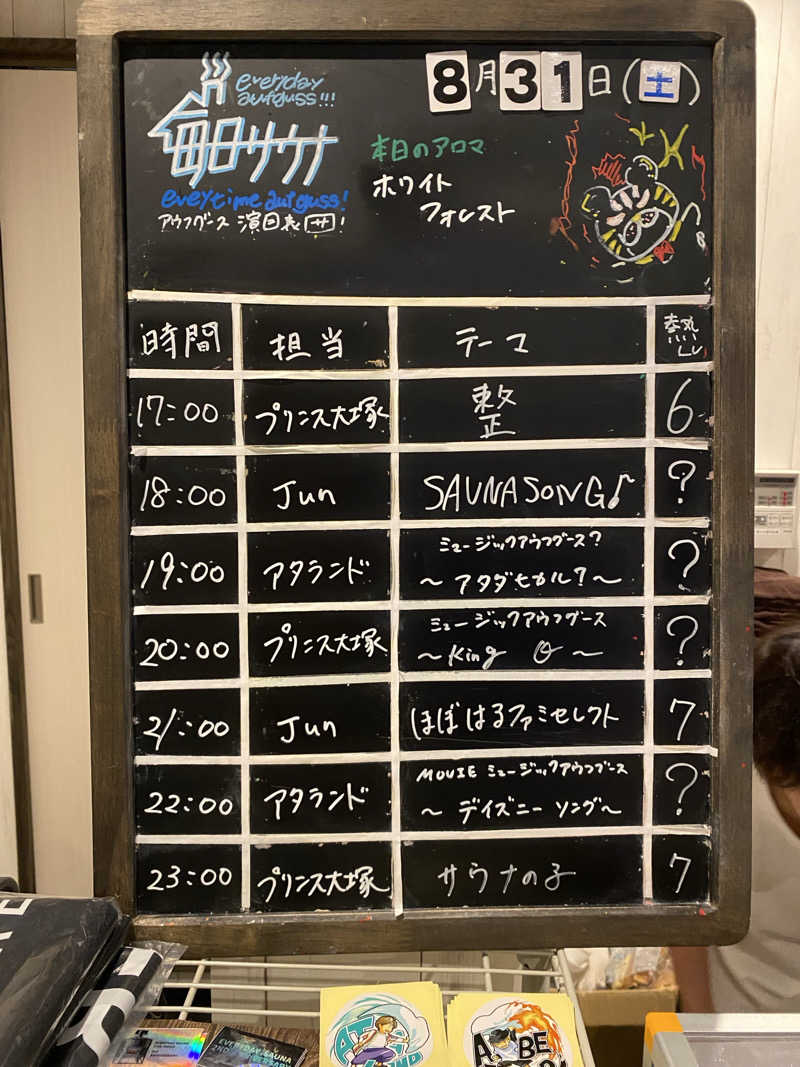 everyday
aufguss!!!
毎日サウナ
everytime aufguss!
アウフグース 演目表 サ!
8月31日(土)
本日のアロマ
ホワイト
フォレスト
時間 担当 テーマ 熱
17:00 プリンス大塚 整 6
18:00 Jun SAUNASONG♪ ?
19:00 アタランド ミュージックアウフグース? ～アタダヒカル?～ ?
20:00 プリンス大塚 ミュージックアウフグース ～King O～ ?
21:00 Jun ほぼはるファミセレクト 7
22:00 アタランド MOVIE ミュージックアウフグース ～ディズニーソング～ ?
23:00 プリンス大塚 サウナの子 7